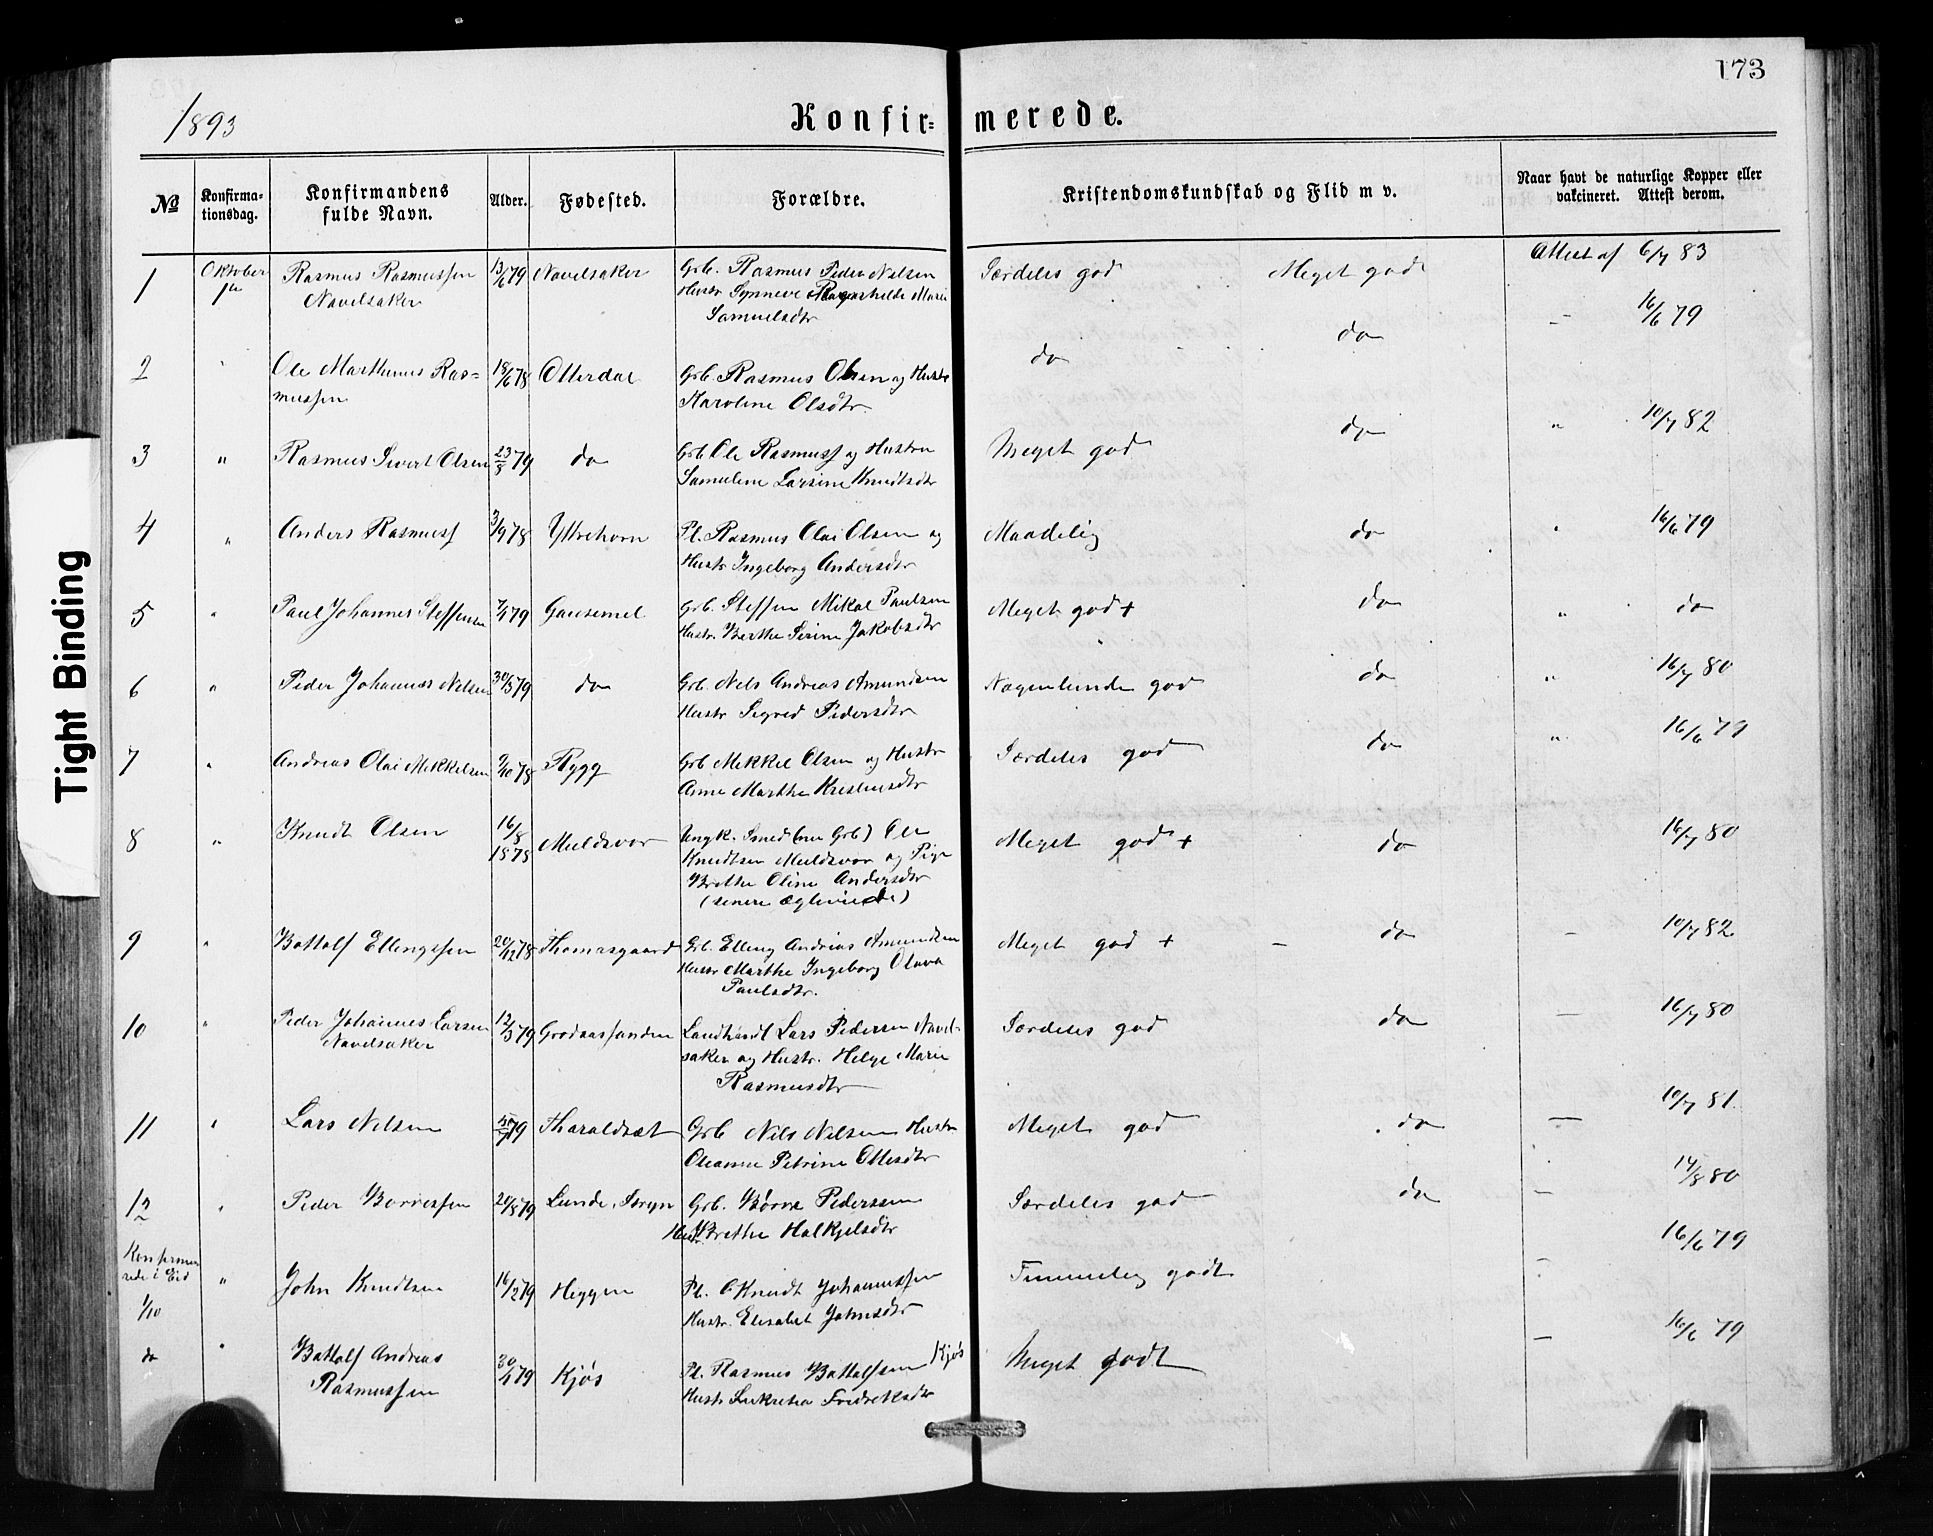 173
1893
Konfir= merede.
№ Konfirma-tionsdag. Konfirmandens fulde Navn. Alder. Fødested. Forældre. Kristendomskundskab og Flid m v. Naar havt de naturlige Kopper eller vakcineret. Attest derom.
1 Oktober 1ste Rasmus Rasmussen 13/6 79 Navelsaker Grb. Rasmus Peder Nilsen Særdeles god Meget god Attest af 6/7 83
Navelsaker Hustr Synneve Ragnhilde Marie
Samuelsdtr
2 " Ole Marthinus Ras= 18/6 78 Otterdal Grb. Rasmus Olsen og Hustr do do — 16/6 79
mussen Karoline Olsdtr.
3 " Rasmus Sivert Olsen 23/5 79 do Grb Ole Rasmuss og Hustru Meget god do " 10/7 82
Samueline Larsine Knudtsdtr
4 " Anders Rasmuss 3/9 78 Yttrehorn Pl. Rasmus Olai Olsen og Maadelig do " 16/6 79
Hustr Ingeborg Andersdtr
5 " Paul Johannes Steffensen 7/1 79 Gausemel Grb. Steffen Mikal Paulsen Meget god + do " do
Hustr. Berthe Serine Jakobsdtr
6 " Peder Johannes Nilsen 30/3 79 do Grb. Nils Andreas Amundsen Nogenlunde god do " 16/7 80
Hustr Sigrid Pedersdtr
7 " Andreas Olai Mikkelsen 9/10 78 Rygg Grb Mikkel Olsen og Hustr Særdeles god do " 16/6 79
Anne Marthe Kristensdtr
8 " Knudt Olsen 16/8 1878 Muldsvor Ungk. Smed (nu Grb) Ole Meget god + do 16/7 80
Knudtsen Muldsvor og Pige
Brithe Oline Andersdtr
(senere Ægteviede)
9 " Bottolf Ellingssen 20/12 78 Thomasgaard Grb. Elling Andreas Amundsen Meget god + – do — 10/7 82
Hustr Marthe Ingeborg Olava
Paulsdtr.
10 " Peder Johannes Larsen 12/3 79 Grodaassanden Landhandl Lars Pedersen Navel- Særdeles god do — 16/7 80
Navelsaker saker og Hustr. Helge Marie
Rasmusdtr
11 " Lars Nilsen 79 Haraldsæt Grb Nils Nilsen Hustr Meget god do — 10/7 81
Oleanne Petrine Ottesdtr
12 " Peder Børresen 20/8 79 Lunde, Stryn Grb. Børre Pedersen Særdeles god do — 14/8 80
Hustr. Brithe Halkjelsdtr
Konfirme-
rede i Eid
1/10 " John Knudtsen 16/2 79 Heggen Pl. Knudt Johannessen Temmelig godt — 16/6 79
Hustr. Elisabet Johnsdtr
do " Bottolf Andreas 30/1 79 Kjøs Pl. Rasmus Bottolfsen Kjøs Meget godt — 16/6 79
Rasmussen Hustr Lukretia Fredriksdtr
Tight Binding